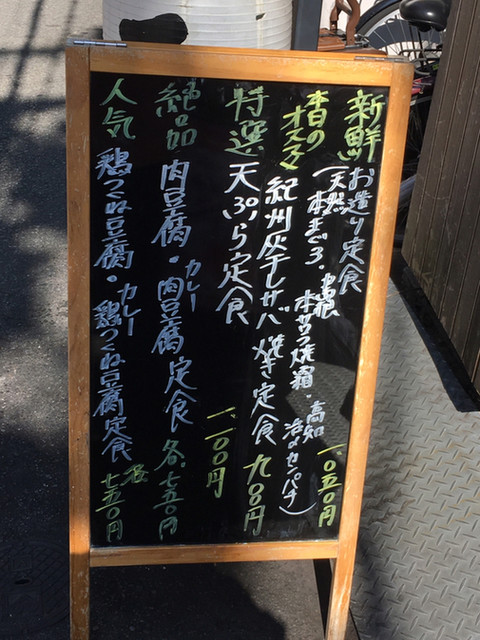 新鮮 お造り定食
(天然本まぐろ・島根 本サワラ焼霜・高知 活〆カンパチ) 一、〇五〇円
本日のオススメ 紀州灰干しサバ焼き定食 九〇〇円
特選 天ぷら定食 一、一〇〇円
絶品 肉豆腐・カレー肉豆腐定食 各、七五〇円
人気 鶏つくね豆腐・カレー鶏つくね豆腐定食 各七五〇円